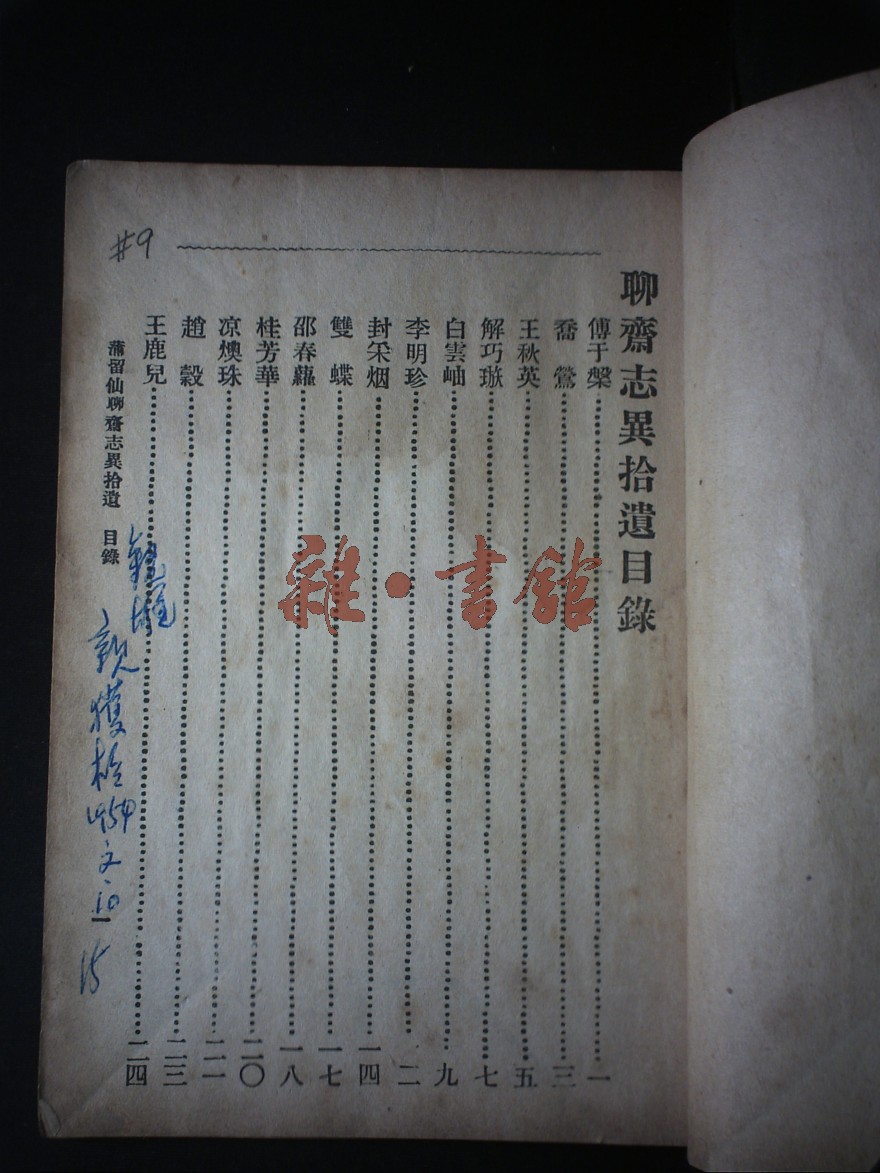 聊齋志異拾遺目錄
傅于槃……一
喬　鶯……三
王秋英……五
解巧璈……七
白雲岫……九
李明珍……二
封釆烟……一四
雙　蝶……一七
邵春蘿……一八
桂芳華……二〇
凉燠珠……二一
趙　縠……二三
王鹿兒……二四
蒲留仙聊齋志異拾遺　目錄
#9
1954.2.10
15
雜·書館